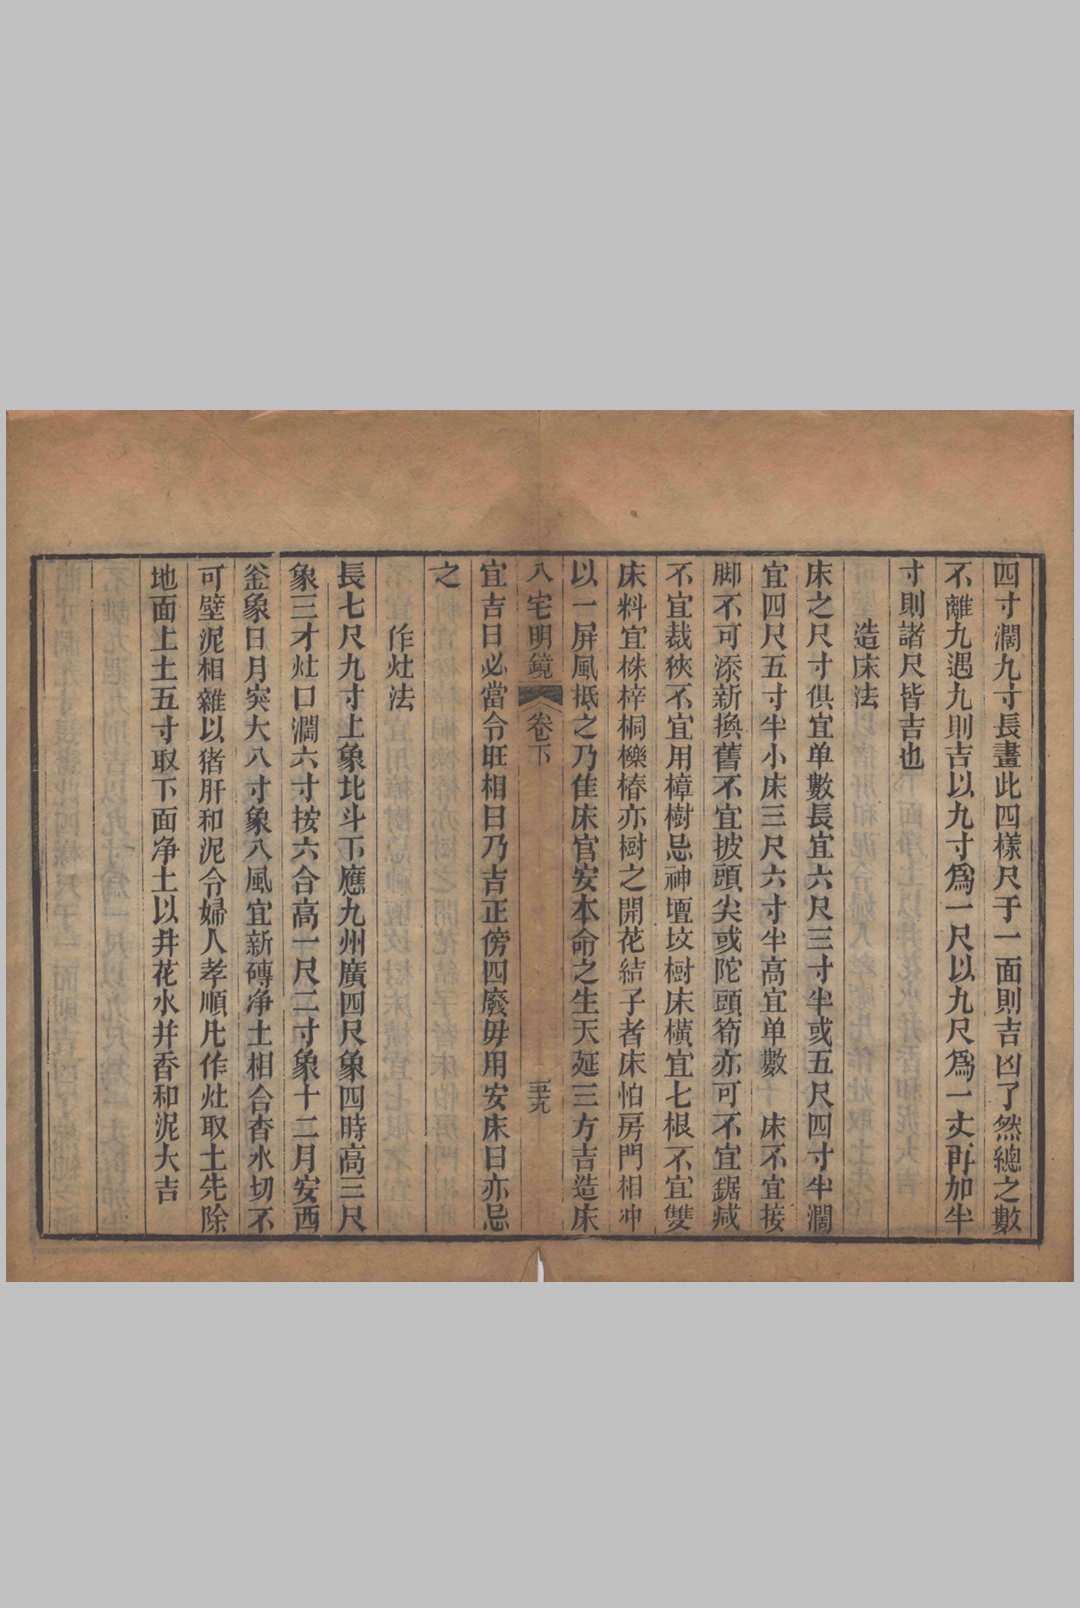 四寸濶九寸長畫此四樣尺于一面則吉凶了然總之數
不離九遇九則吉以九寸爲一尺以九尺爲一丈再加半
寸則諸尺皆吉也
造床法
床之尺寸俱宜单數長宜六尺三寸半或五尺四寸半濶
宜四尺五寸半小床三尺六寸半高宜单數 床不宜接
脚不可添新換舊不宜披頭尖或陀頭筍亦可不宜鋸減
不宜裁狹不宜用樟樹忌神壇坟樹床橫宜七根不宜雙
床料宜株梓桐櫟椿亦樹之開花結子者床怕房門相冲
以一屏風抵之乃佳床官安本命之生天延三方吉造床
八宅明鏡 卷下 三九
宜吉日必當令旺相日乃吉正傍四廢毋用安床日亦忌
之
作灶法
長七尺九寸上象北斗下應九州廣四尺象四時高三尺
象三才灶口濶六寸按六合高一尺二寸象十二月安西
釜象日月突大八寸象八風宜新磚净土相合杳水切不
可壁泥相雜以猪肝和泥令婦人孝順凡作灶取土先除
地面上土五寸取下面净土以井花水并香和泥大吉